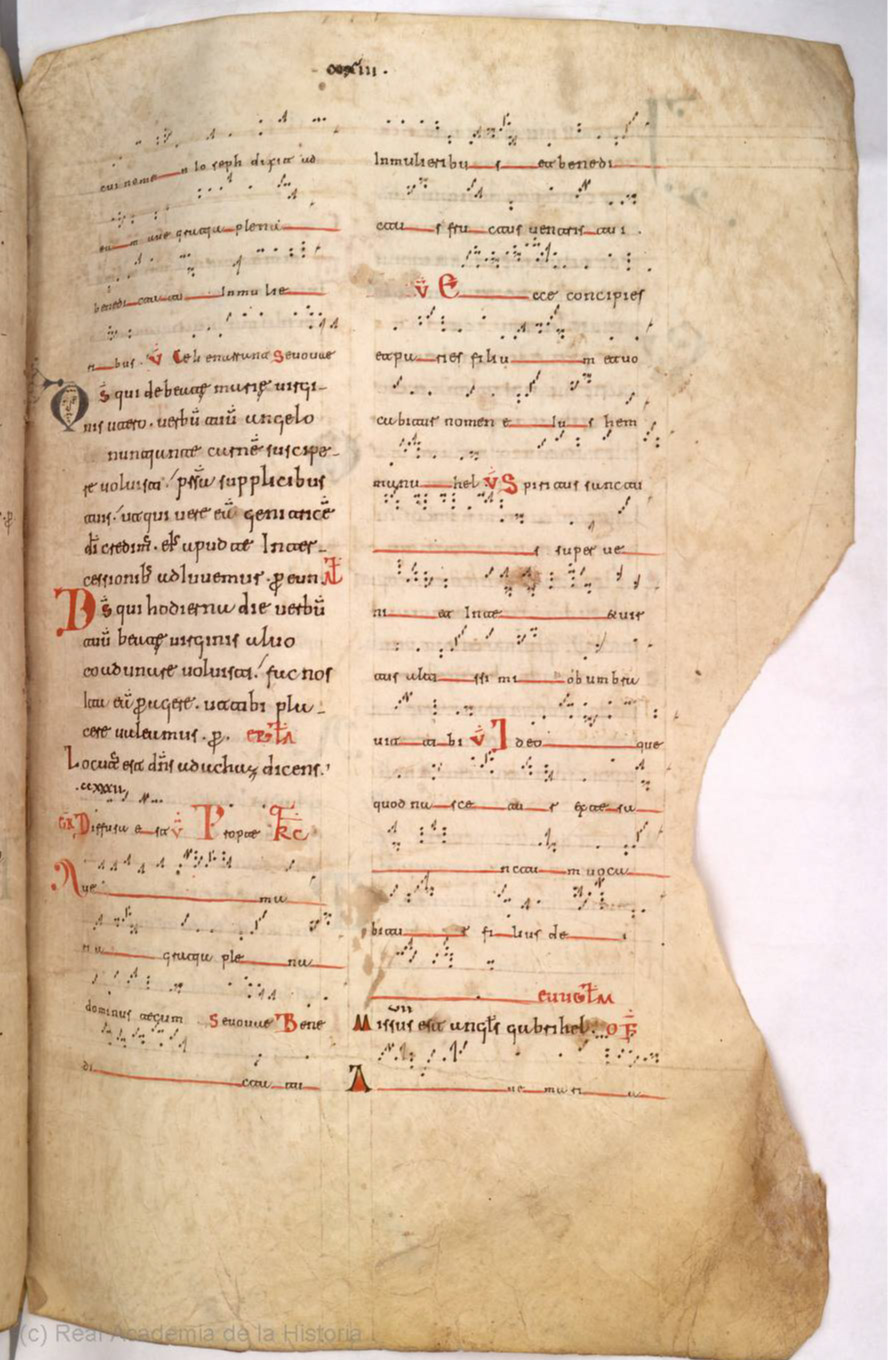 cui nome n Ioseph dixit ad
ea m aue gracia plena
benedi cta tu Inmu lie
ri bus. V̄ Celi enarrant Seuouae
Ds̄ qui de beatę marię uirgi
nis utero. uerbū tuū angelo
nunciante carnē suscipe
re uoluisti. p̄sta supplicibus
tuis. ut qui uere eā genitricē
di credim̄. ei' apud te Inter
cessionib' adiuuemur. p eun
Ds̄ qui hodierna die uerbū
tuū beatę uirginis aluo
coadunare uoluisti. fac nos
ita eā p agere. ut tibi pla
cere ualeamus. p.
Locut' est dn̄s ad achaz dicens.
Diffusa e st V̄ Propte
Aue ma
ri a gracia ple na
dominus tecum Seuouae Bene
di cta tu
Inmulieribu s et benedi
ctu s fru ctus uentris tui.
V̄ Ecce concipies
et pa ries filiu m et uo
cabitur nomen e iu s hem
manu hel V̄ Spiritus sanctu
s super ue
ni et Inte &uir
tus alti ssi mi obumbra
uit ti bi V̄ Ideo que
quod na sce tu r ex te sa
nctu m uoca
bitu r fi lius de i
Missus est angl's gabrihel. OF
A ue mari a
(c) Real Academia de la Historia